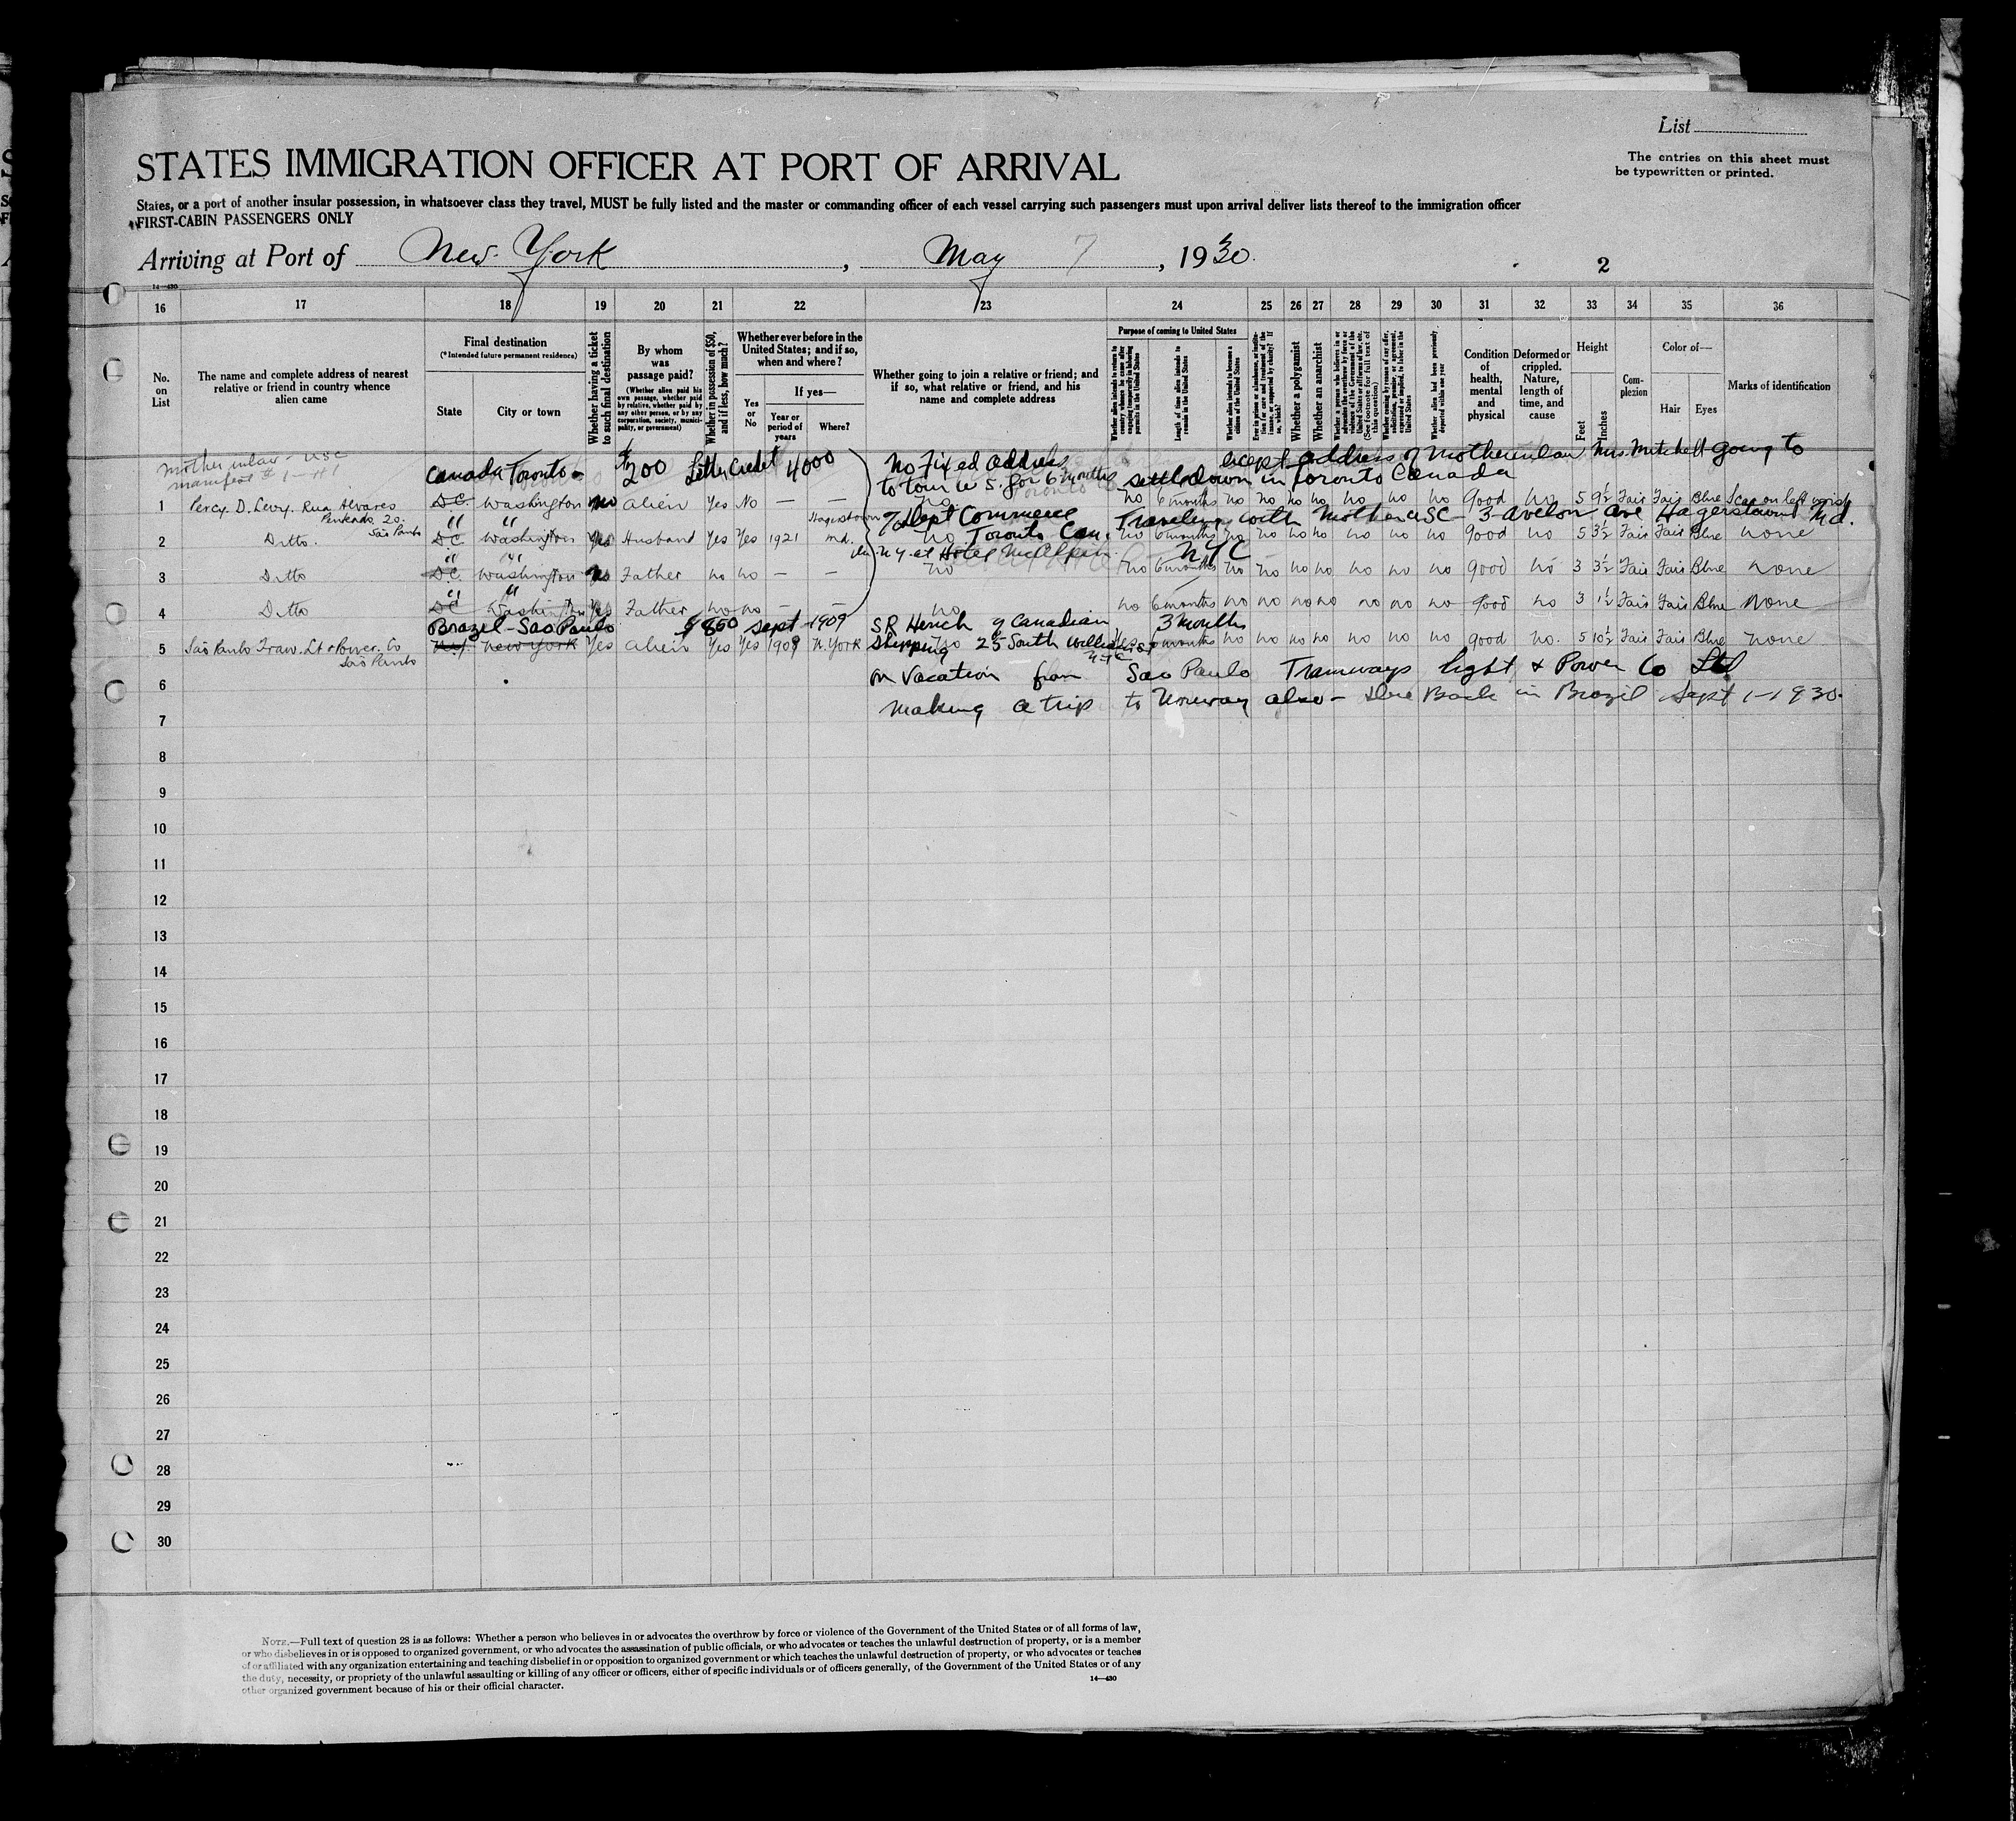 List
The entries on this sheet must
be typewritten or printed.
STATES IMMIGRATION OFFICER AT PORT OF ARRIVAL
States, or a port of another insular possession, in whatsoever class they travel, MUST be fully listed and the master or commanding officer of each vessel carrying such passengers must upon arrival deliver lists thereof to the immigration officer
FIRST-CABIN PASSENGERS ONLY
Arriving at Port of New York, May 7, 1930
2
14—430
16 17 18 19 20 21 22 23 24 25 26 27 28 29 30 31 32 33 34 35 36
No. on List
The name and complete address of nearest relative or friend in country whence alien came
Final destination
(*Intended future permanent residence)
State
City or town
Whether having a ticket to such final destination
By whom was passage paid?
(Whether alien paid his own passage, whether paid by relative, whether paid by any other person, or by any corporation, society, municipality, or government)
Whether in possession of $50, and if less, how much?
Whether ever before in the United States; and if so, when and where?
Yes or No
If yes—
Year or period of years
Where?
Whether going to join a relative or friend; and if so, what relative or friend, and his name and complete address
Purpose of coming to United States
Length of time alien intends to remain in the United States
Whether alien intends to become a citizen of the United States
Whether a polygamist
Whether an anarchist
Condition of health, mental and physical
Deformed or crippled. Nature, length of time, and cause
Height
Feet
Inches
Complexion
Color of—
Hair
Eyes
Marks of identification
mother inlaw - USC
manifest # 1
Canada Toronto $200 Letter Credit 4000 No Fixed address except address of mother inlaw Mrs. Mitchell going to
to tour U S. for 6 months settledown in Toronto Canada
1 Percy. D. Levy. Rua Alvares D.C. Washington No alien Yes No — — no no 6 months no no no no no no no good no 5 9½ Fair Fair Blue Scar on left wrist
Penteado 20. Sao Paulo
" " Hagerstown Dept Commerce Traveling with Mother USC - 3 Avelon Ave Hagerstown Md.
2 Ditto. D.C. Washington Yes Husband Yes Yes 1921 Md. no Toronto Can. no 6 months no no no no no no no good no 5 3½ Fair Fair Blue none
" " N.Y. at Hotel McAlpin NYC
3 Ditto D.C. Washington Father no no — — no no 6 months no no no no no no no good no 3 3½ Fair Fair Blue none
" "
4 Ditto D.C. Washington Yes Father no no — — no no 6 months no no no no no no no good no 3 1½ Fair Fair Blue none
Brazil - Sao Paulo $850 Sept - 1909 S R Hench of Canadian 3 months
5 Sao Paulo Tram. Lt & Power. Co N.Y. New York Yes alien Yes Yes 1909 N. York Shipping no 25 South William St Yes 6 months no no no no no no no good no. 5 10½ Fair Fair Blue none
Sao Paulo
6 on Vacation from Sao Paulo Tramways light & Power Co Ltd
7 making a trip to Norway also - due Back in Brazil Sept 1 - 1930.
8
9
10
11
12
13
14
15
16
17
18
19
20
21
22
23
24
25
26
27
28
29
30
NOTE.—Full text of question 28 is as follows: Whether a person who believes in or advocates the overthrow by force or violence of the Government of the United States or of all forms of law,
or who disbelieves in or is opposed to organized government, or who advocates the assassination of public officials, or who advocates or teaches the unlawful destruction of property, or is a member
of or affiliated with any organization entertaining and teaching disbelief in or opposition to organized government or which teaches the unlawful destruction of property, or who advocates or teaches
the duty, necessity, or propriety of the unlawful assaulting or killing of any officer or officers, either of specific individuals or of officers generally, of the Government of the United States or of any
other organized government because of his or their official character.
14—430